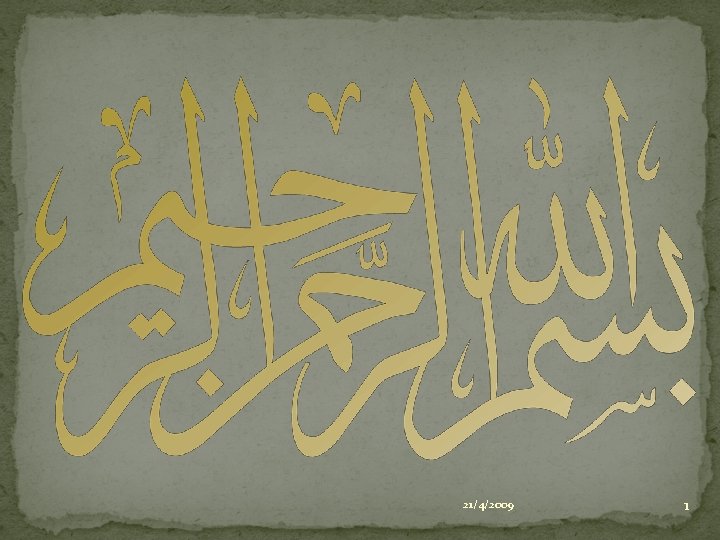 بسم الله الرحمن الرحيم
21/4/2009
1